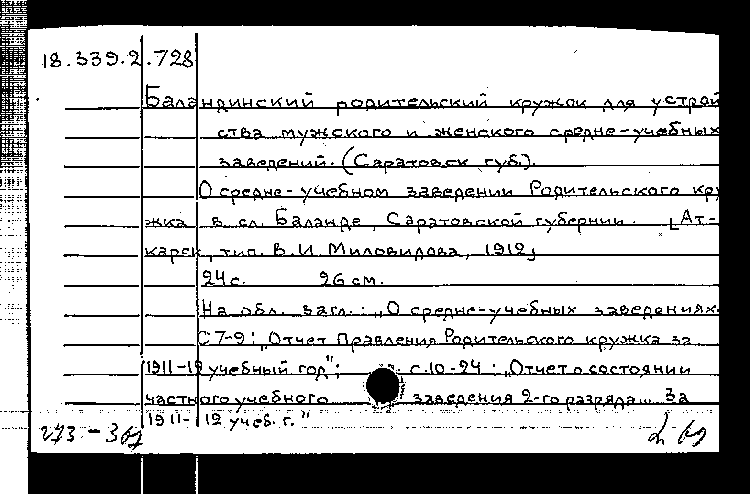 18.339.2.728
Баландинский родительский кружок для устрой
ства мужского и женского средне-учебных
заведений. (Саратовск. губ.).
О средне-учебном заведении Родительского кру
жка в сл. Баланде, Саратовской губернии. [Ат-
карск, тип. В.И. Миловидова, 1912]
24 с. 26 см.
На обл. загл.: „О средне-учебных заведениях.
С 7-9: „Отчет Правления Родительского кружка за
1911-12 учебный год"; с. 10-24: „Отчет о состоянии
частного учебного заведения 2-го разряда... за
1911-12 учеб. г."